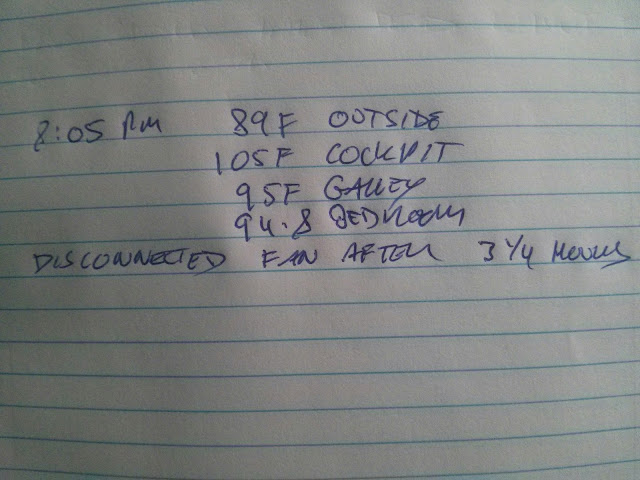 8:05 PM 89F OUTSIDE
105F COCKPIT
95F GALLEY
94.8 BEDROOM
DISCONNECTED FAN AFTER 3 1/4 HOURS